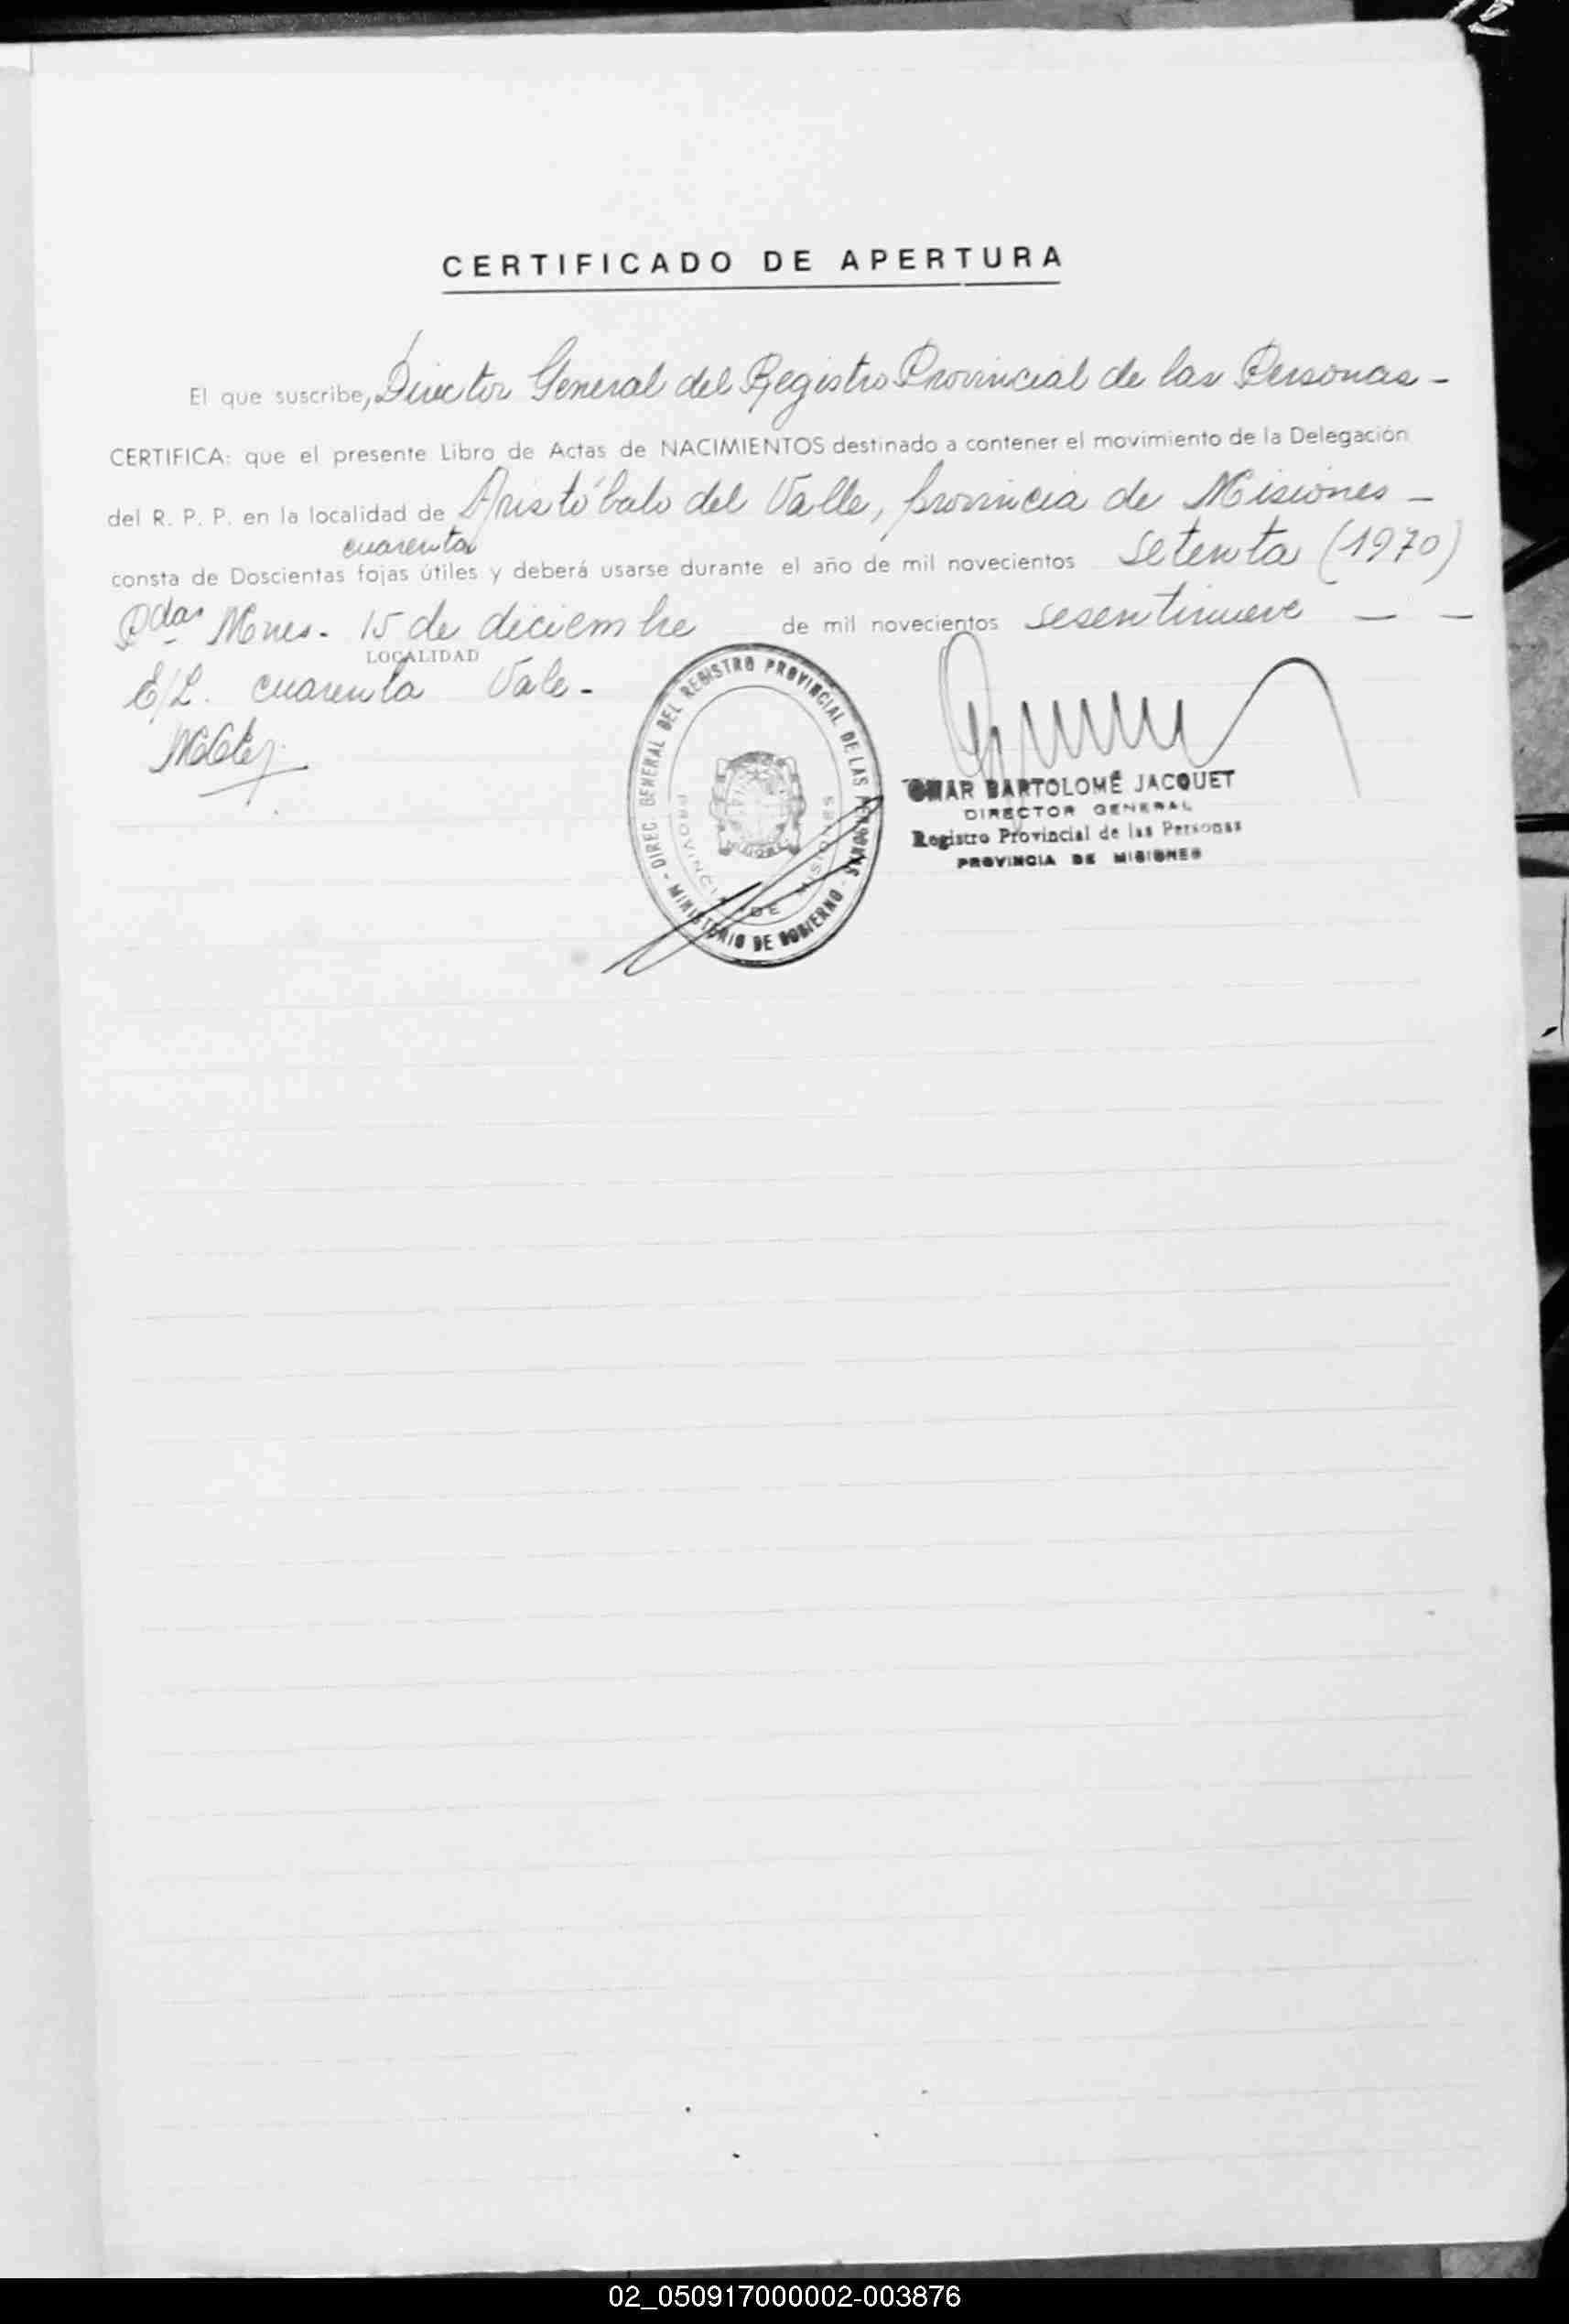 CERTIFICADO DE APERTURA
El que suscribe, Director General del Registro Provincial de las Personas -
CERTIFICA: que el presente Libro de Actas de NACIMIENTOS destinado a contener el movimiento de la Delegación
del R. P. P. en la localidad de Aristóbulo del Valle, provincia de Misiones -
cuarenta
consta de Doscientas fojas útiles y deberá usarse durante el año de mil novecientos setenta (1970)
Pdas Mnes. 15 de diciembre de mil novecientos sesentinueve — —
LOCALIDAD
E/L. cuarenta Vale -
DIREC. GENERAL DEL REGISTRO PROVINCIAL DE LAS PERSONAS - MINISTERIO DE GOBIERNO -
PROVINCIA DE MISIONES
OMAR BARTOLOMÉ JACQUET
DIRECTOR GENERAL
Registro Provincial de las Personas
PROVINCIA DE MISIONES
02_050917000002-003876